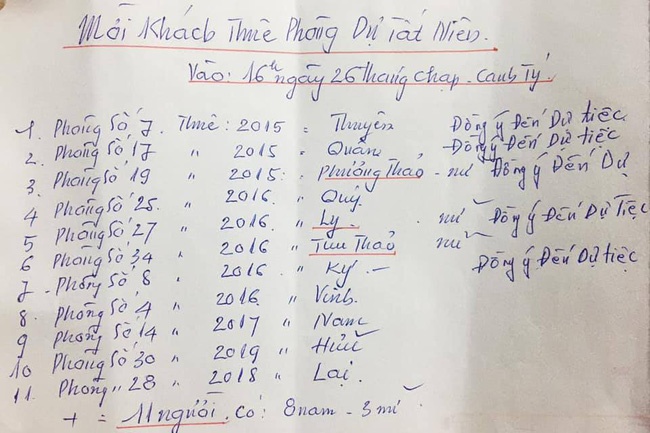 Mời Khách Thuê Phòng Dự Tất Niên.
Vào: 16h ngày 26 Tháng Chạp. Canh Tý.
1. Phòng Số 7. Thuê: 2015 = Thuyên Đồng ý Đến Dự tiệc
2. Phòng Số 17 " 2015 " Quân Đồng ý Đến Dự tiệc
3. Phòng Số 19 " 2015: Phương Thảo - nữ Đồng ý Đến Dự
4 Phòng Số 25. " 2016. " Quý.
5 Phòng Số 27 " 2016 " Ly. nữ Đồng ý Đến Dự Tiệc
6 Phòng Số 34 " 2016 " Thu Thảo nữ
7 - Phòng Số 8 " 2016. " Ký. - Đồng ý Đến Dự tiệc
8. Phòng Số 4 " 2016 " Vinh.
9 Phòng Số 14 " 2017 " Nam
10 Phòng Số 30 " 2019 " Hữu
11. Phòng " 28 " 2018 " Lại.
+ = 11 người. có: 8 nam - 3 nữ.